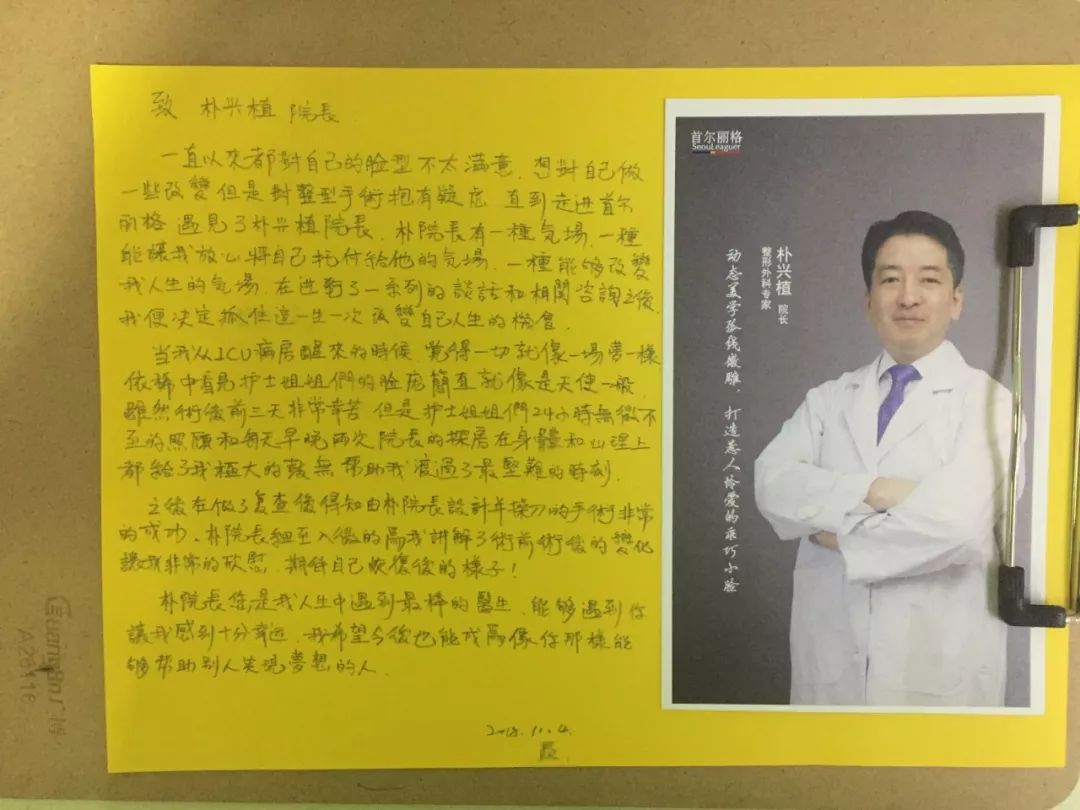 致 朴兴植 院長
一直以來都對自己的脸型不太满意，想對自己做
一些改變但是對整型手術抱有疑虑，直到走进首尔
丽格遇見了朴兴植院長，朴院長有一種気場，一種
能讓我放心将自己托付給他的気場，一種能够改變
我人生的気場，在进행了一系列的談話和相関咨詢之後，
我便决定抓住這一生一次改變自己人生的機會。
当我从ICU病房醒來的時候，覚得一切就像一場夢一樣
依稀中看見护士姐姐們的脸庞簡直就像是天使一般，
雖然術後前三天非常辛苦，但是护士姐姐們24小時無微不
至的照顧和每天早晚两次院長的探房在身體和心理上
都給了我極大的鼓舞，帮助我渡過了最堅難的時刻。
之後在做了复查後得知由朴院長設計并操刀的手術非常
的成功。朴院長細至入微的爲我讲解了術前術後的變化
讓我非常的欣慰，期待自己恢復後的樣子！
朴院長您是我人生中遇到最棒的醫生，能够遇到你
讓我感到十分幸运，我希望今後也能成爲像你那樣能
够帮助别人实現夢想的人。
2018.11.4.
首尔丽格
SeouLeaguer
朴兴植 院长
整形外科专家
动态美学弧线微雕，打造惹人怜爱的乖巧小脸
GuangBo 广博
A26116